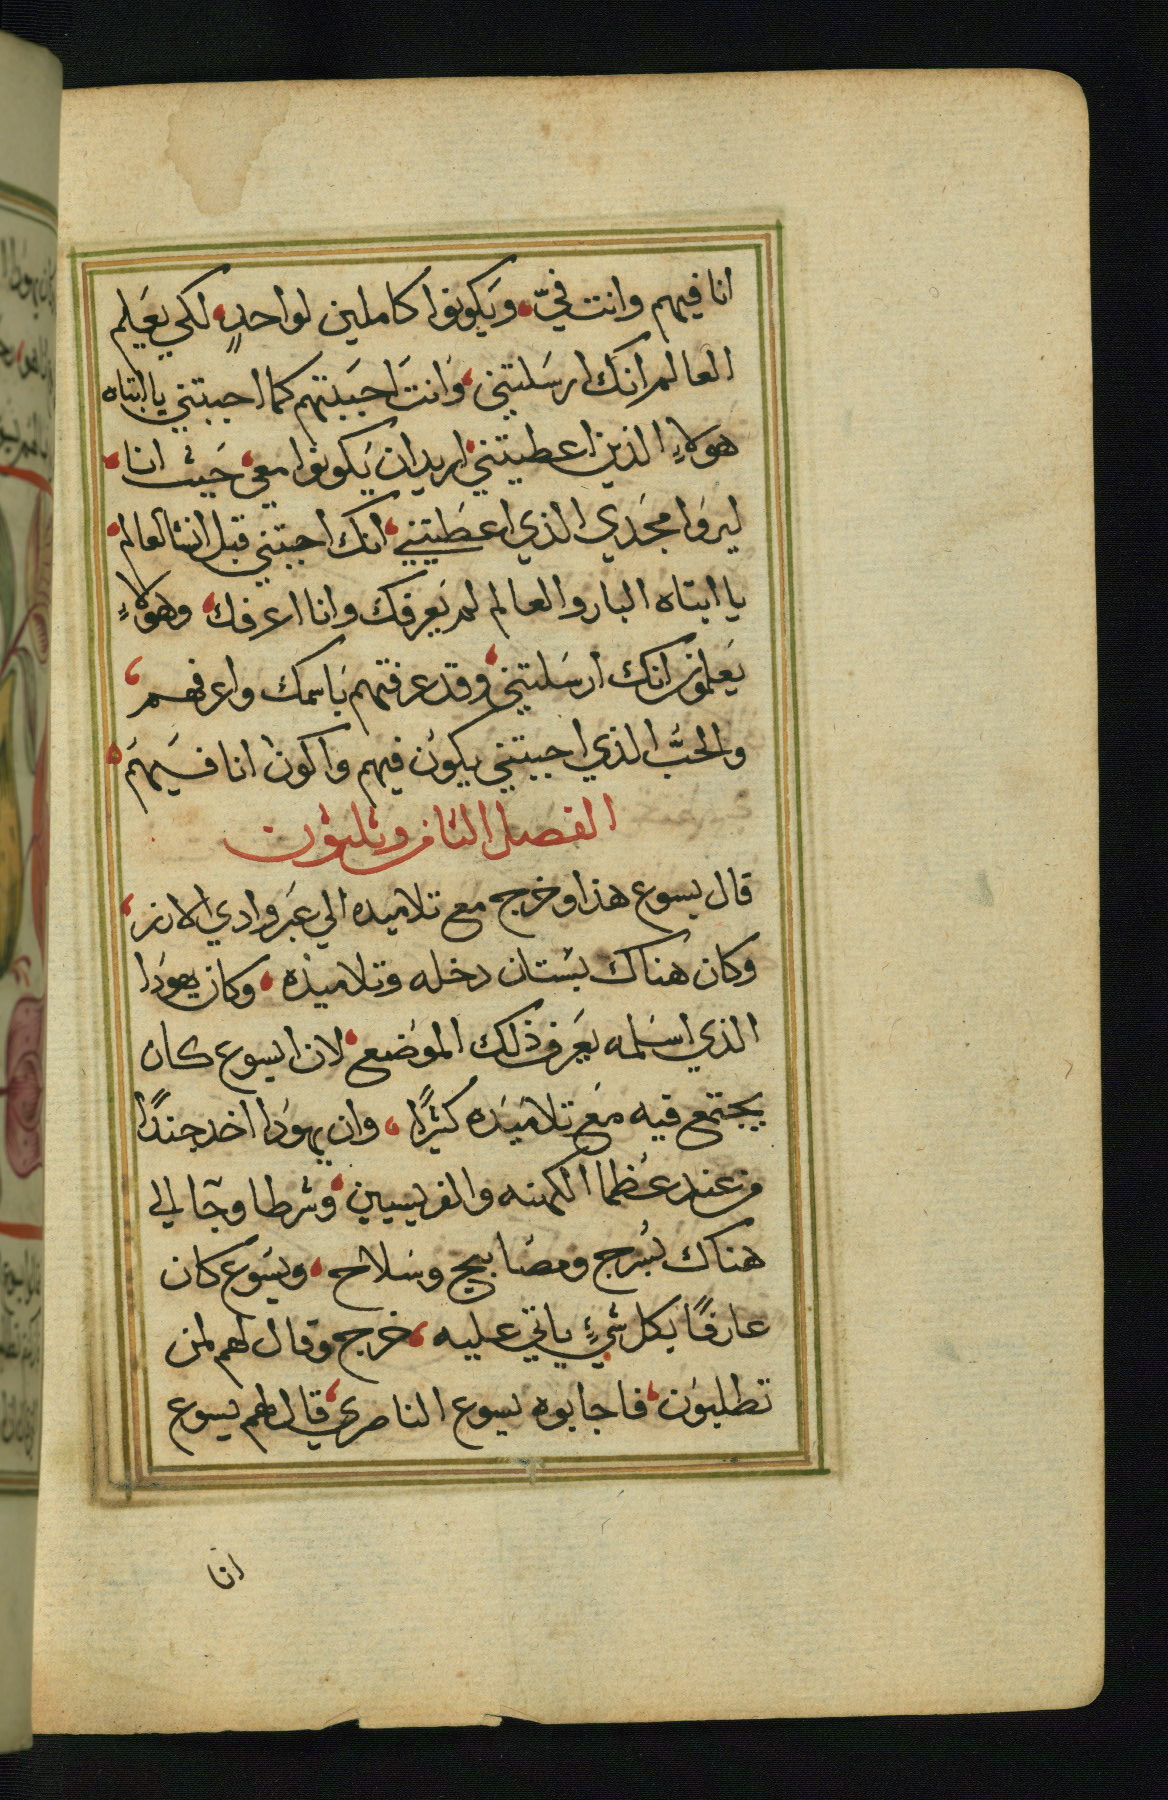 انا فيهم وانت فيّ، ويكونوا كاملين لواحدٍ، لكي يعَلم
العالم انك ارسَلتني، وَانتَ احبَبتهم كما احببتني يا ابتاه
هولاءِ الذين اعطيتني، اريد ان يَكونوا معي، حَيث انا،
ليروَا مجَدي الذي اعطَيتني، انك احببتني قبل انشا العالم،
يا ابتاه البار والعالم لم يَعرفك وانا اعرفك، وهولاءِ
يَعلموُن انك ارسَلتني، وقد عرفتهم بَاسمك واعرفهم،
والحبَّ الذي احببتني يكوُن فيهم واكون انا فيَهمَ
الفصل الثامن وثلثون
قال يسوع هذا وخرج مع تلاميده الي عَبر وادي الارز،
وكان هَناك بسَتان دخله وتلاميذه، وكان يهوَدا
الذي اسَلمه يعَرف ذلك الموَضع، لان ايسوع كان
يجتمع فيه مَع تلامَيَده كثيرًا، وان يهوَدا اخد جندًا
من عند عُظما الكهنه والفريسيين، وشرطا وجَا الي
هناك بسُرج ومصَابيح وسَلاح، ويسَوع كان
عارفًا بكل شيءٍ ياتي عليه، خرج وقال لهم لمن
تطلبوَن، فاجابوه يسوع الناصري، قال لهم يسوع
انا